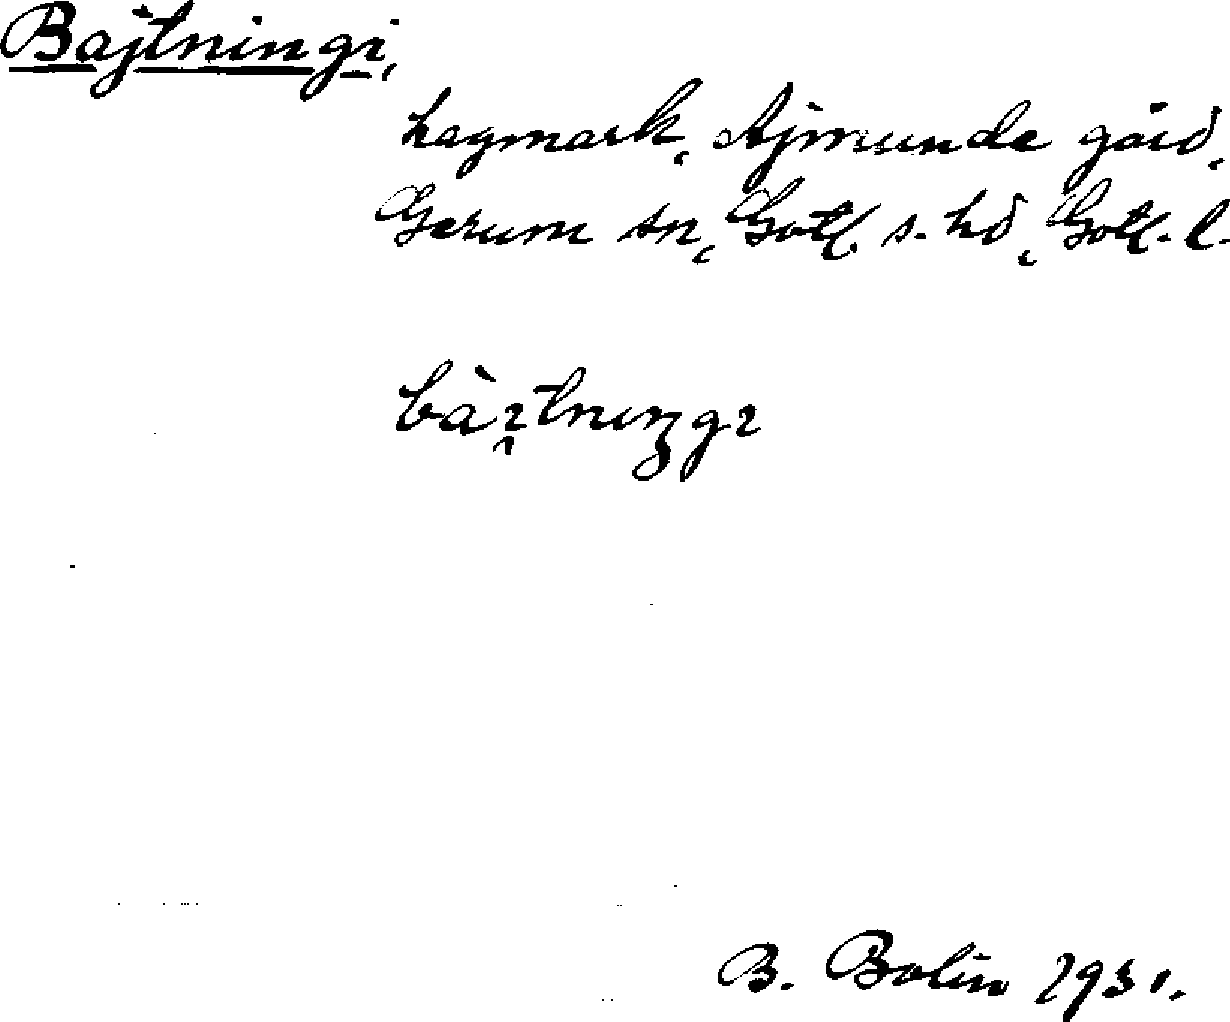 Bajtningi,
hagmark, Ajmunde gård,
Gerum sn, Gotl. s. hd, Gotl. l.
bàı̯tnıŋgı
B. Bolin 1931.